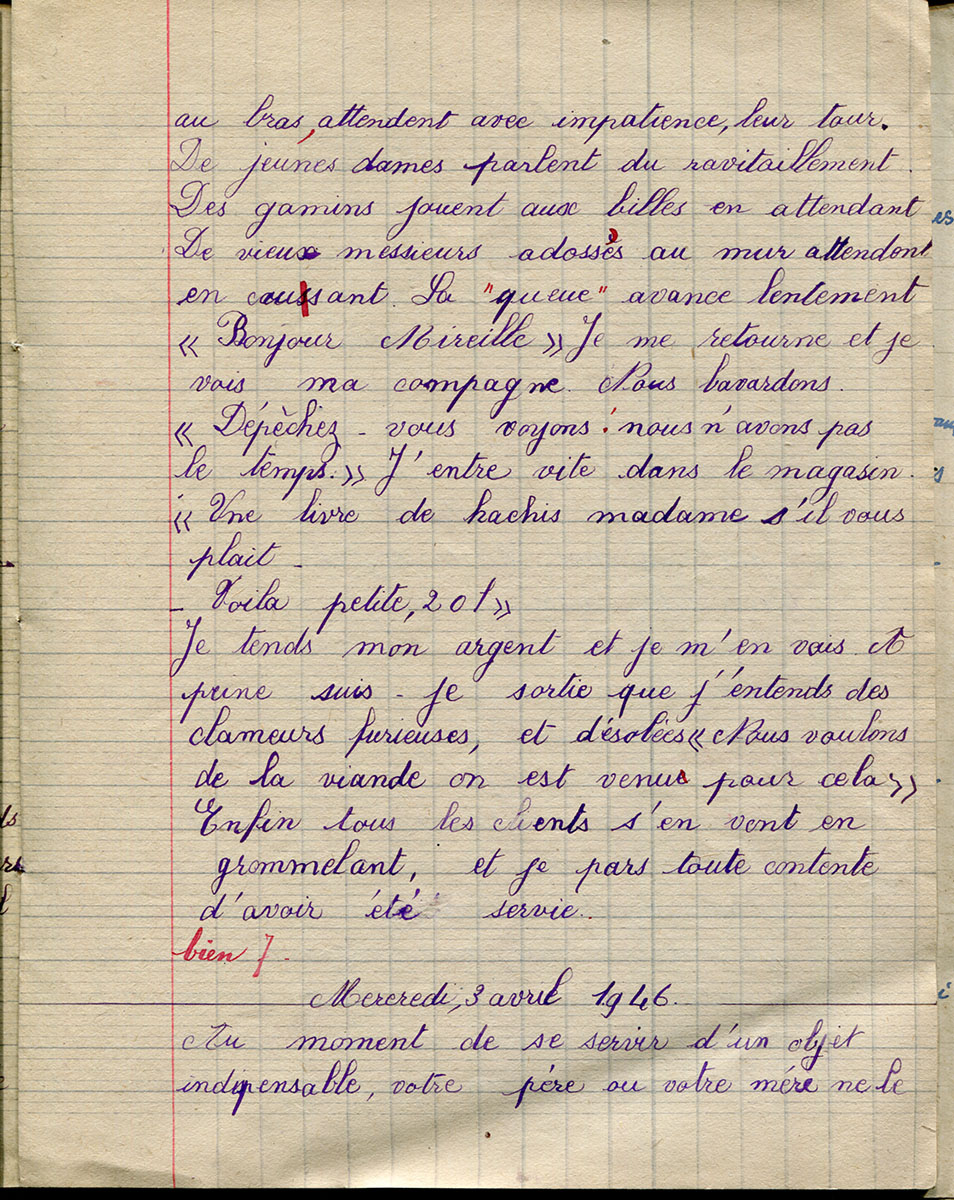 au bras, attendent avec impatience, leur tour.
De jeunes dames parlent du ravitaillement.
Des gamins jouent aux billes en attendant
De vieux messieurs adossés au mur attendent
en causant. La "queue" avance lentement
« Bonjour Mireille » Je me retourne et je
vois ma compagne. Nous bavardons.
« Dépêchez - vous voyons ! nous n'avons pas
le temps. » J'entre vite dans le magasin.
« Une livre de hachis madame s'il vous
plait -
- Voila petite, 20f »
Je tends mon argent et je m'en vais. A
peine suis - je sortie que j'entends des
clameurs furieuses, et désolées « Nous voulons
de la viande on est venus pour cela »
Enfin tous les clients s'en vont en
grommelant, et je pars toute contente
d'avoir été servie..
bien 7.
Mercredi, 3 avril 1946.
Au moment de se servir d'un objet
indipensable, votre père ou votre mère ne le